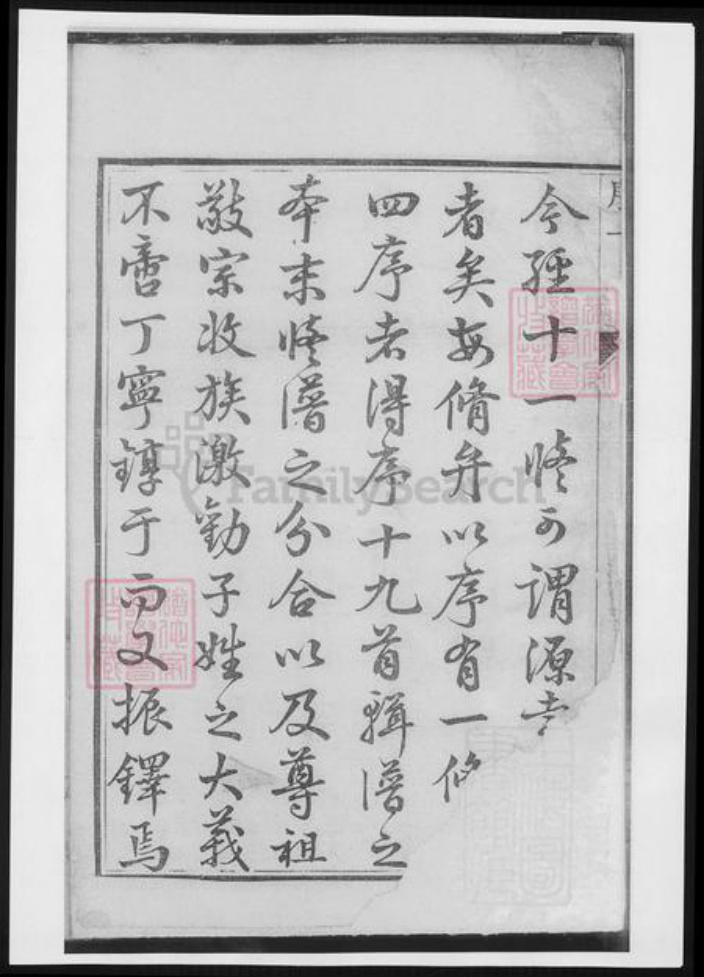 今經十一脩可謂源
者矣每脩弁以序有一脩
四序者得序十九首輯譜之
本末脩譜之分合以及尊祖
敬宗收族激勸子姓之大義
不啻丁寧錞于而又振鐸焉
序一
FamilySearch